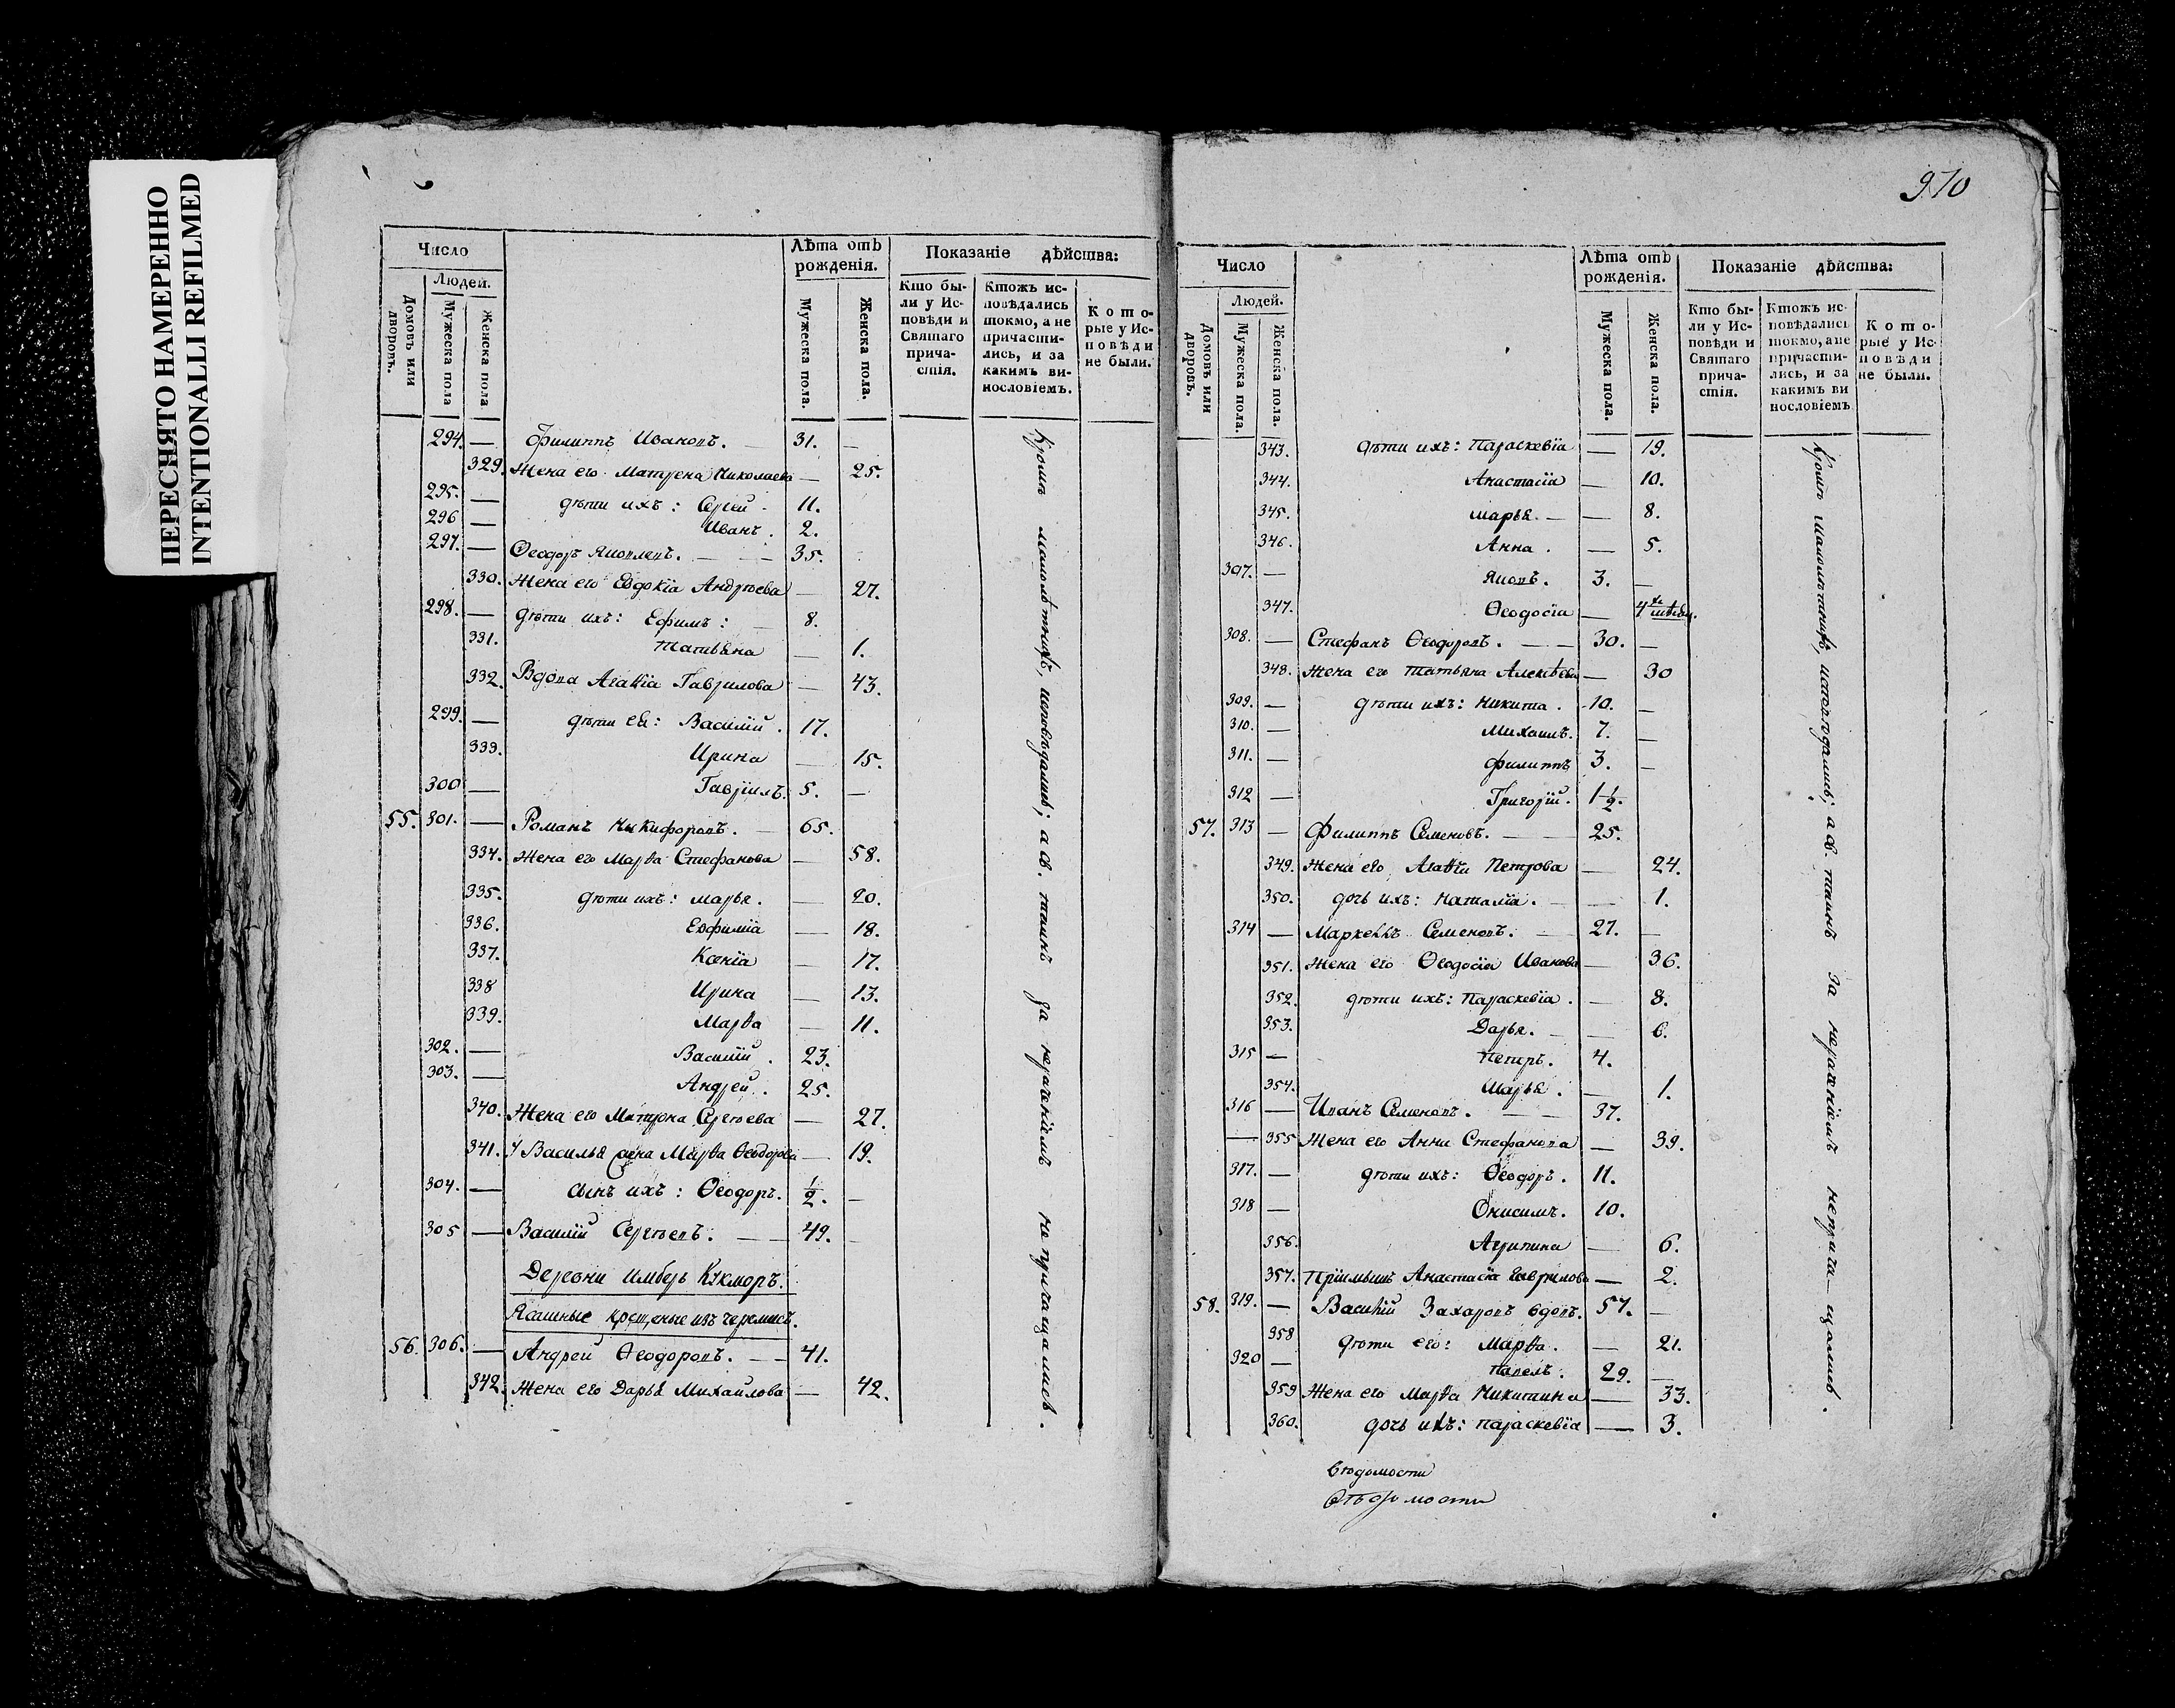 ПЕРЕСНЯТО НАМЕРЕННО
INTENTIONALLI REFILMED
Число
Людей.
Домовъ или дворовъ.
Мужеска пола
Женска пола
Лѣта отъ рожденія.
Мужеска пола.
Женска пола.
Показаніе дѣйства:
Кто были у Исповѣди и Святаго причастія.
Ктожъ исповѣдались токмо, а не причастились, и за какимъ винословіемъ.
Которые у Исповѣди не были.
294. — Филиппъ Ивановъ. — 31. —
329. Жена его Матрена Николаева — 25.
295. — дѣти ихъ: Сергей - 11.
296 — Иванъ. 2.
297. — Ѳеодоръ Яковлевъ. — — 35.
330. Жена его Евдокіа Андрѣева — 27.
298. — дѣти ихъ: Ефимъ: — 8.
331. Татьяна — 1.
332. Вдова Агаѳіа Гаврилова — 43.
299. — дѣти ея: Василій. 17.
333. Ирина — 15.
300 — Гавріилъ. 5. —
55. 301. — Романъ Никифоровъ. — 65.
334. Жена его Марѳа Стефанова — 58.
335. дѣти ихъ: Марья. — 20.
336. Евфиміа — 18.
337. Ксеніа — 17.
338 Ирина — 13.
339. Марѳа — 11.
302. — Василій. 23.
303. — Андрей. 25.
340. Жена его Матрона Сергѣева — 27.
341. У Василья жена Марѳа Ѳеодорова — 19.
304. — сынъ ихъ: Ѳеодоръ. 1/2. —
305 — Василій Сергѣевъ. — — 49. —
Деревни Имберь Кукморъ.
Ясашные крещеные изъ черемисъ.
56. 306. — Андрей Ѳеодоровъ. — — 41.
342. Жена его Дарья Михайлова — 42.
Кромѣ малолѣтнихъ, исповѣдались; а св. таинъ за нераченіемъ не причащались.
970
Число
Людей.
Домовъ или дворовъ.
Мужеска пола.
Женска пола.
Лѣта отъ рожденія.
Мужеска пола.
Женска пола.
Показаніе дѣйства:
Кто были у Исповѣди и Святаго причастія.
Ктожъ исповѣдались токмо, а не причастились, и за какимъ винословіемъ
Которые у Исповѣди не были.
343. дѣти ихъ: Параскевіа — 19.
344. Анастасіа — 10.
345. Марья. — — 8.
346. Анна. — 5.
307. — Яковъ. 3. —
347. Ѳеодосіа — 4
308. — Стефанъ Ѳеодоровъ. — — 30. —
348. Жена его Татьяна Алексѣева — 30
309. — дѣти ихъ: Никита. 10. —
310. — Михаилъ. 7. —
311. — Филиппъ 3. —
312 — Григорій. 1 1/2.
57. 313 — Филиппъ Семеновъ. — — 25.
349. Жена его Агаѳіа Петрова — 24.
350. дочь ихъ: Наталіа. — — 1.
314 — Маркеллъ Семеновъ. — 27. —
351. Жена его Ѳеодосіа Иванова — 36.
352. дѣти ихъ: Параскевіа. — 8.
353. Дарья. — — 6.
315 — Петръ. 4.
354. Марья. — 1.
316 — Иванъ Семеновъ. — — 37.
— 355 Жена его Анна Стефанова — 39.
317. — дѣти ихъ: Ѳеодоръ. 11.
318 — Онисимъ. 10.
356. Агрипина — 6.
357. Пріемышъ Анастасіа Гаврилова — 2.
58. 319. — Василій Захаровъ вдовъ. 57. —
358 дѣти его: Марѳа. — 21.
320 — Павелъ. 29. —
359 Жена его Марѳа Никитина — 33.
360. дочь ихъ: Параскевіа — 3.
Кромѣ малолѣтнихъ, исповѣдались; а св. таинъ за нераченіемъ не прича-щались.
вѣдомости
вѣдомости